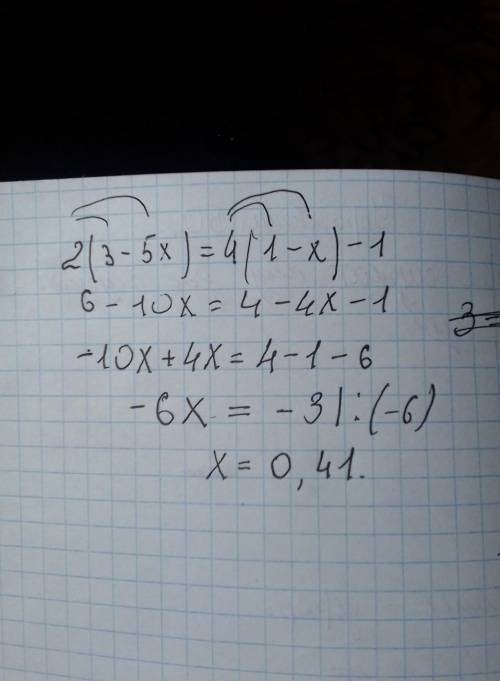 2(3-5x)=4(1-x)-1
6-10x=4-4x-1
3=
-10x+4x=4-1-6
-6x = -3|:(-6)
x= 0,41.